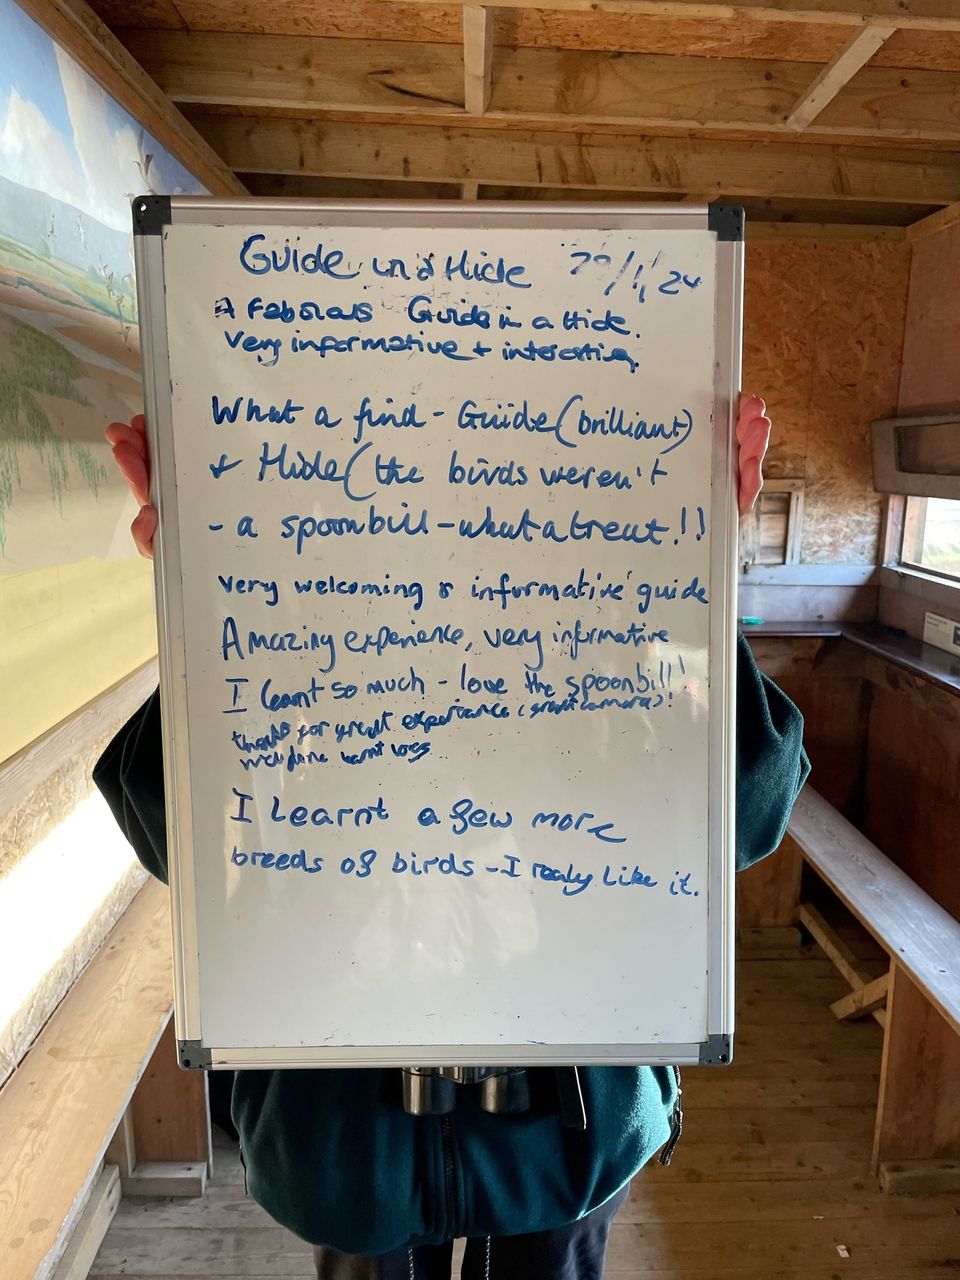 Guide in a Hide /1/24
A Fabolous Guide in a Hide.
Very informative + interesting.
What a find - Guide (brilliant)
+ Hide (the birds weren't
- a spoonbill - what a treat!!
Very welcoming & informative guide
Amazing experience, very informative
I learnt so much - love the spoonbill!
thanks for great experience (great camera)!
I Learnt a few more
breeds of birds - I realy like it.